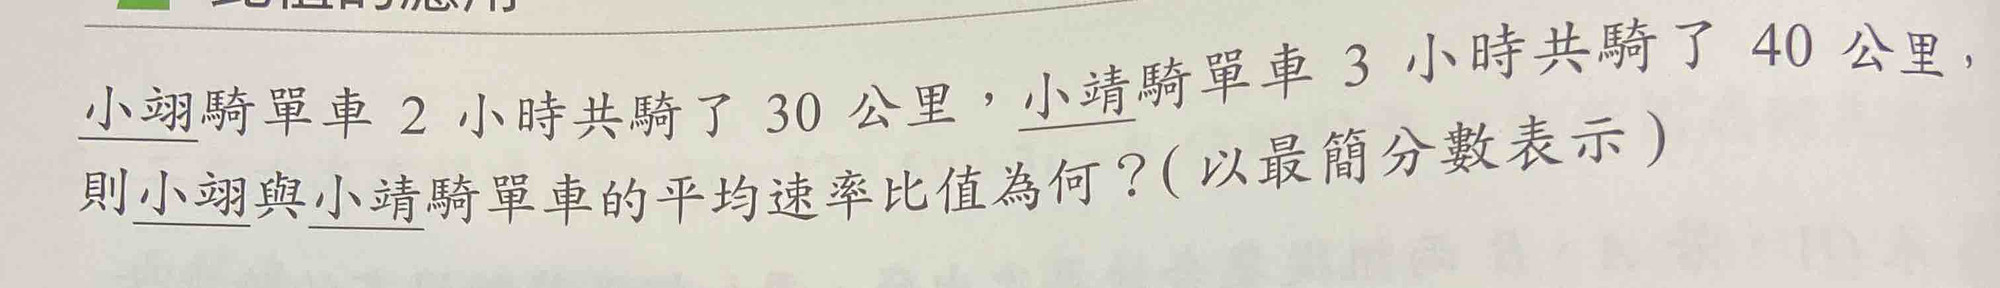 比值的應用
小翊騎單車 2 小時共騎了 30 公里，小靖騎單車 3 小時共騎了 40 公里，
則小翊與小靖騎單車的平均速率比值為何？（以最簡分數表示）